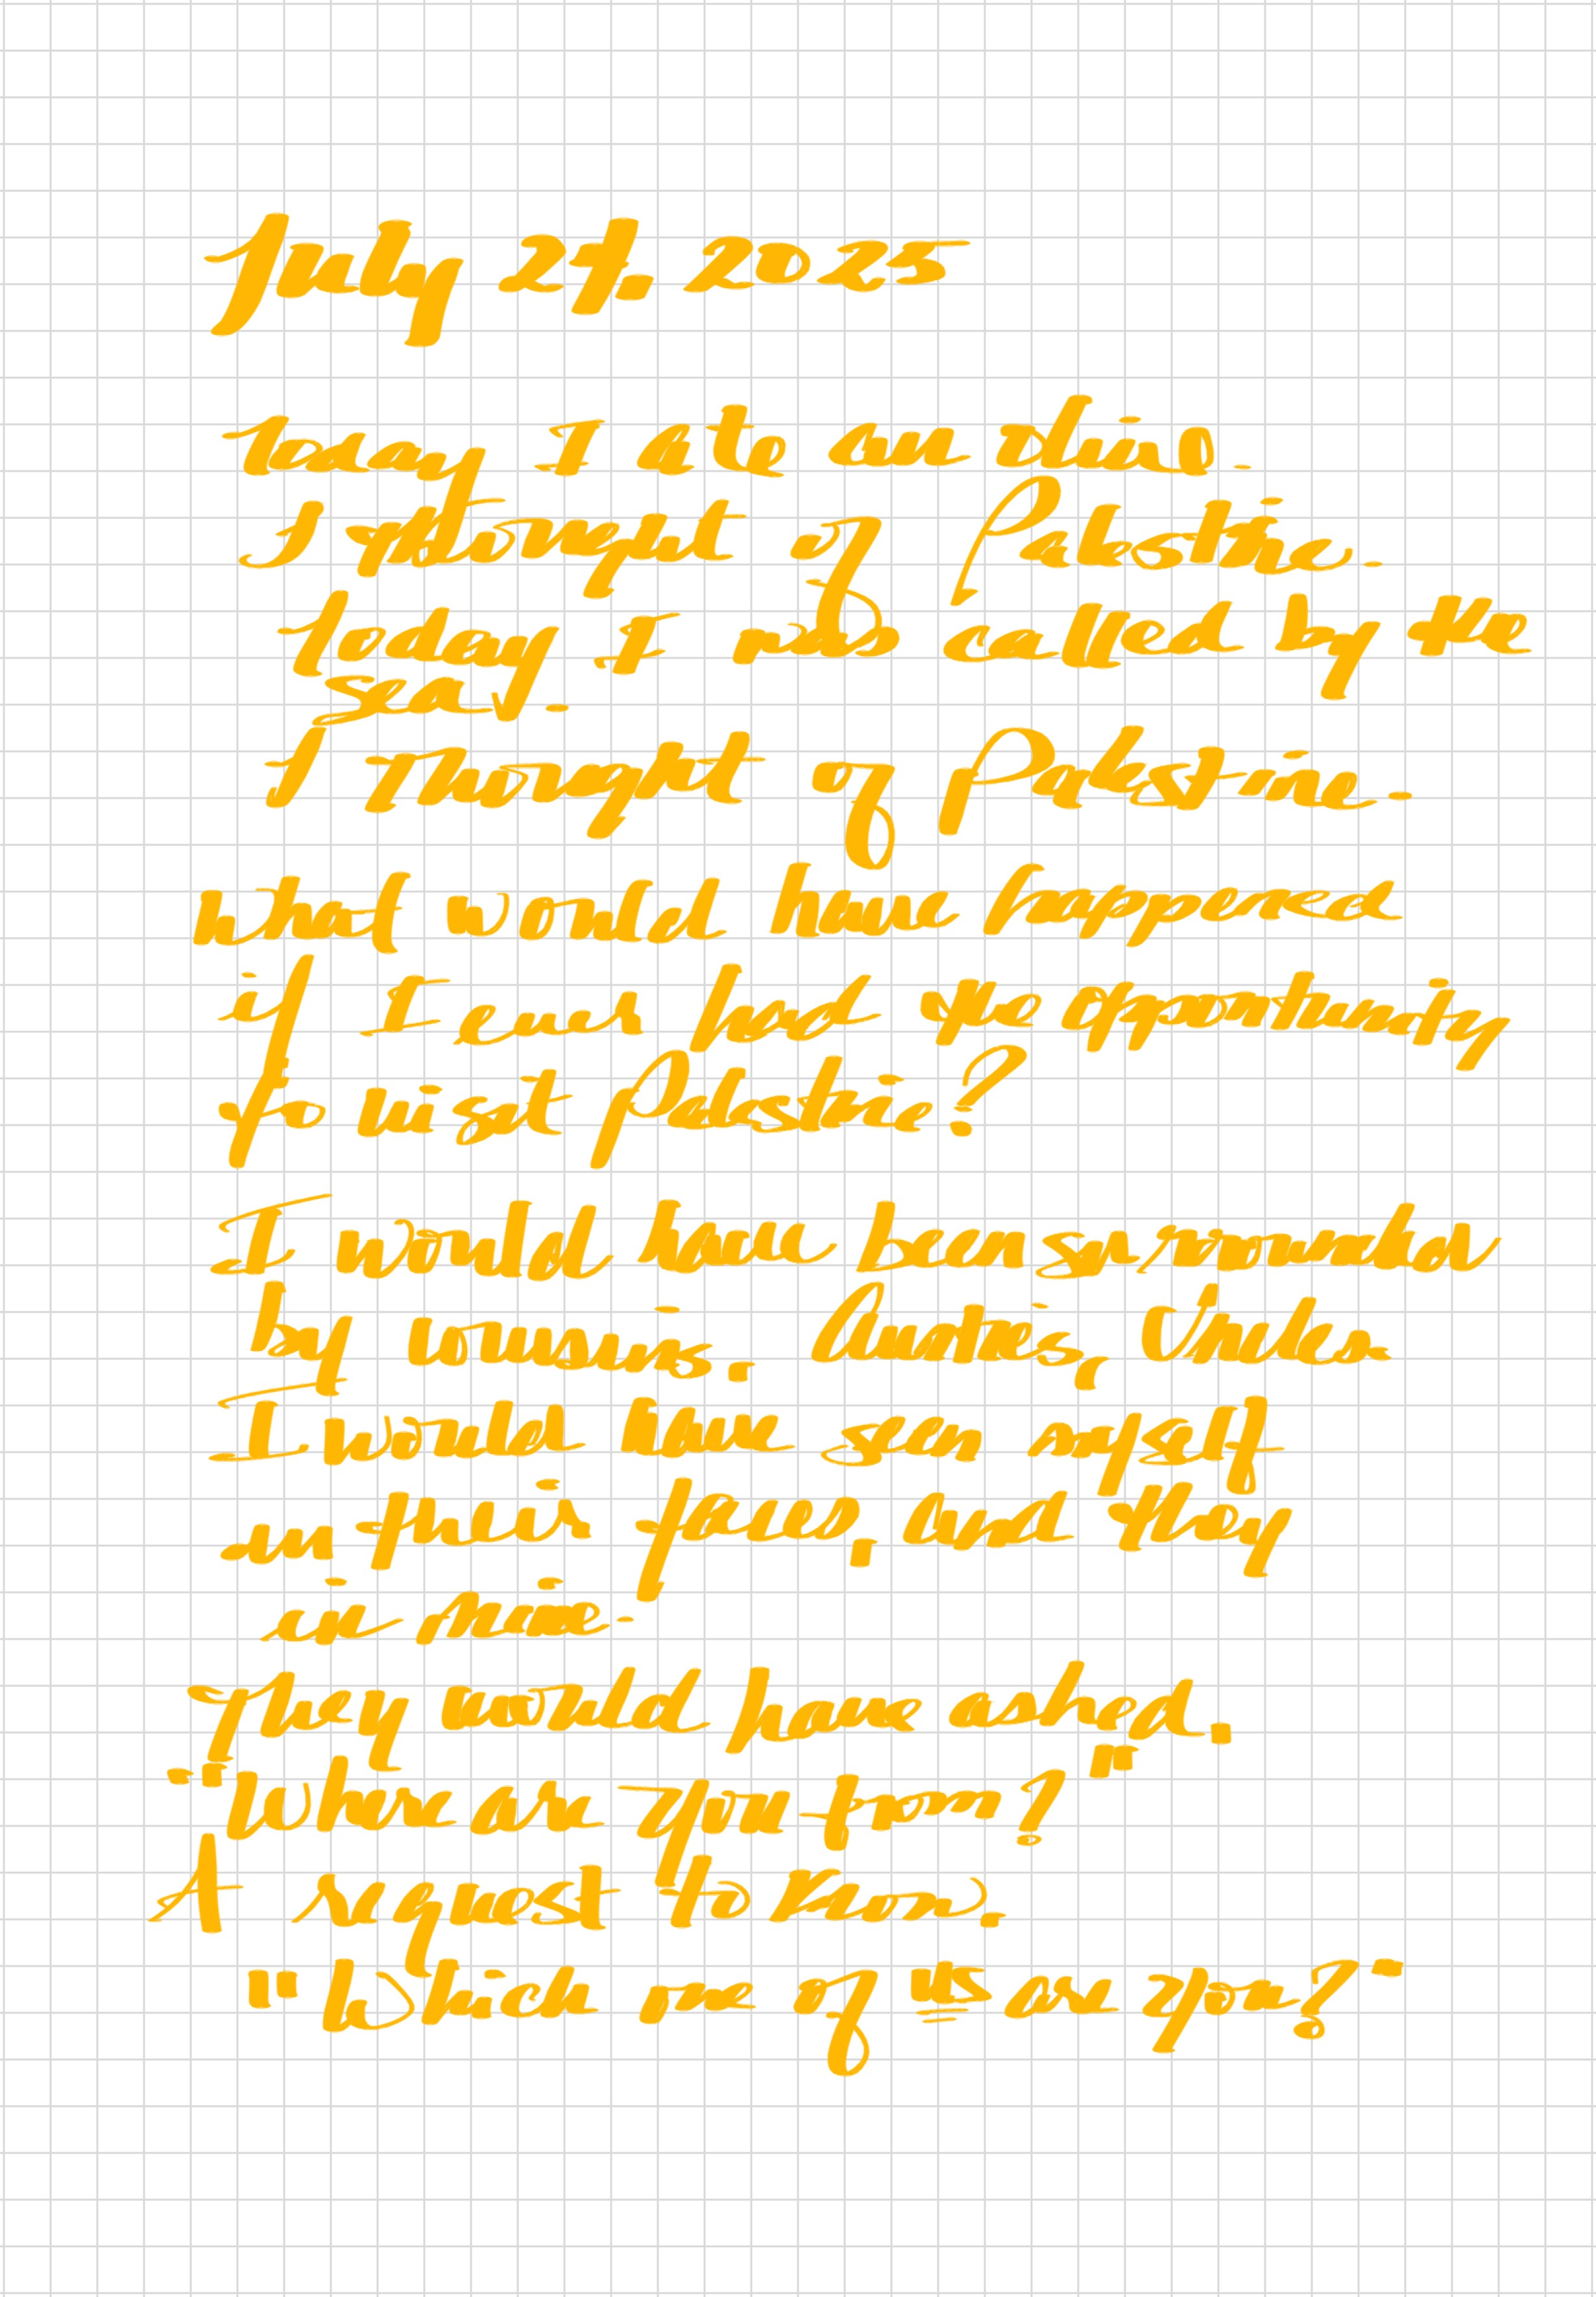 July 27. 2025
Today I ate an olive.
I thought of Palestine.
Today I was called by the
sea.
I thought of Palestine.
What would have happened
if I ever had the opportunity
to visit Palestine?
I would have been surrounded
by cousins. Aunties, Uncles
I would have seen myself
in their faces, and they
in mine.
They would have asked.
"Where are you from?"
A request to know.
"Which one of us are you?"